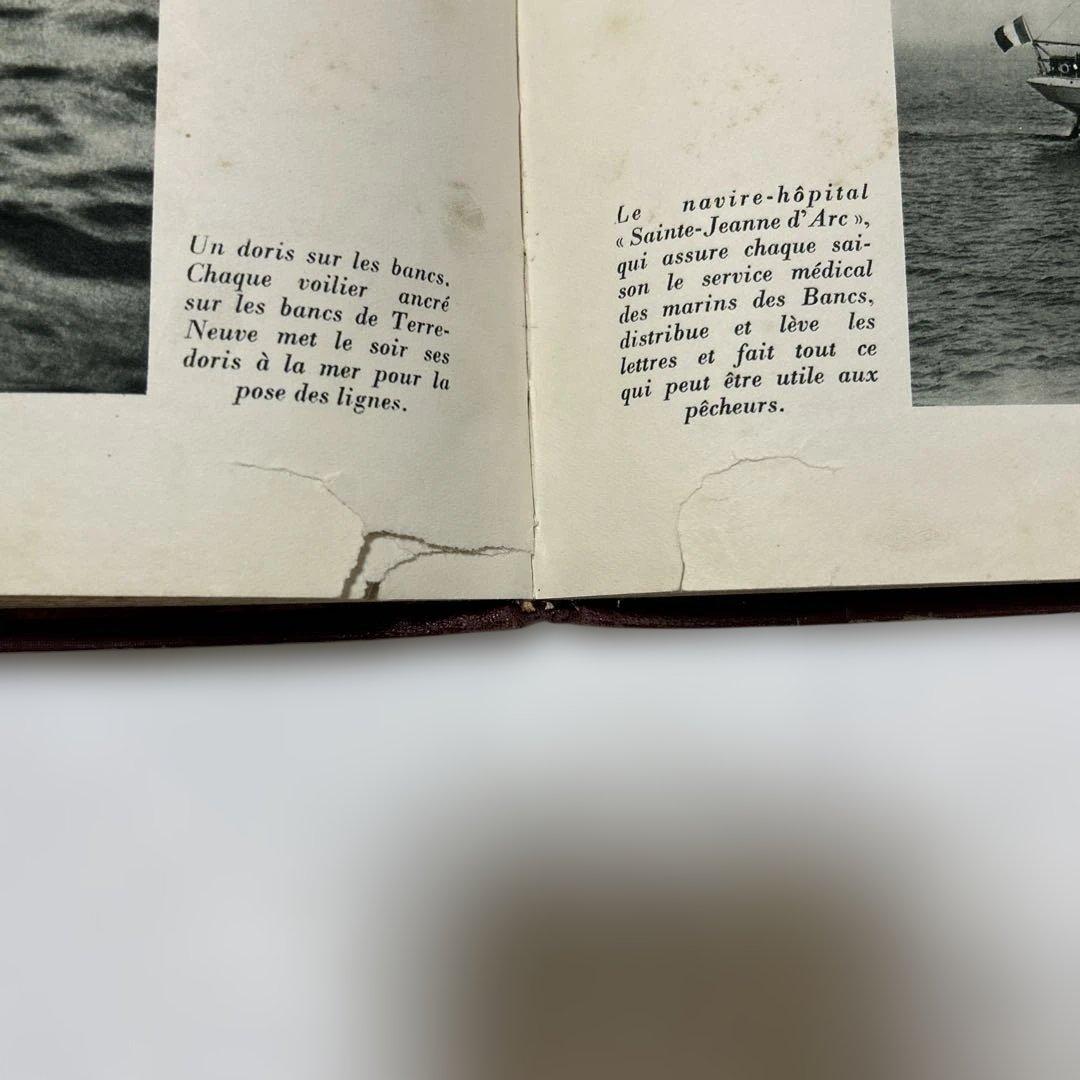 Un doris sur les bancs.
Chaque voilier ancré
sur les bancs de Terre-
Neuve met le soir ses
doris à la mer pour la
pose des lignes.
Le navire-hôpital
« Sainte-Jeanne d'Arc »,
qui assure chaque sai-
son le service médical
des marins des Bancs,
distribue et lève les
lettres et fait tout ce
qui peut être utile aux
pêcheurs.